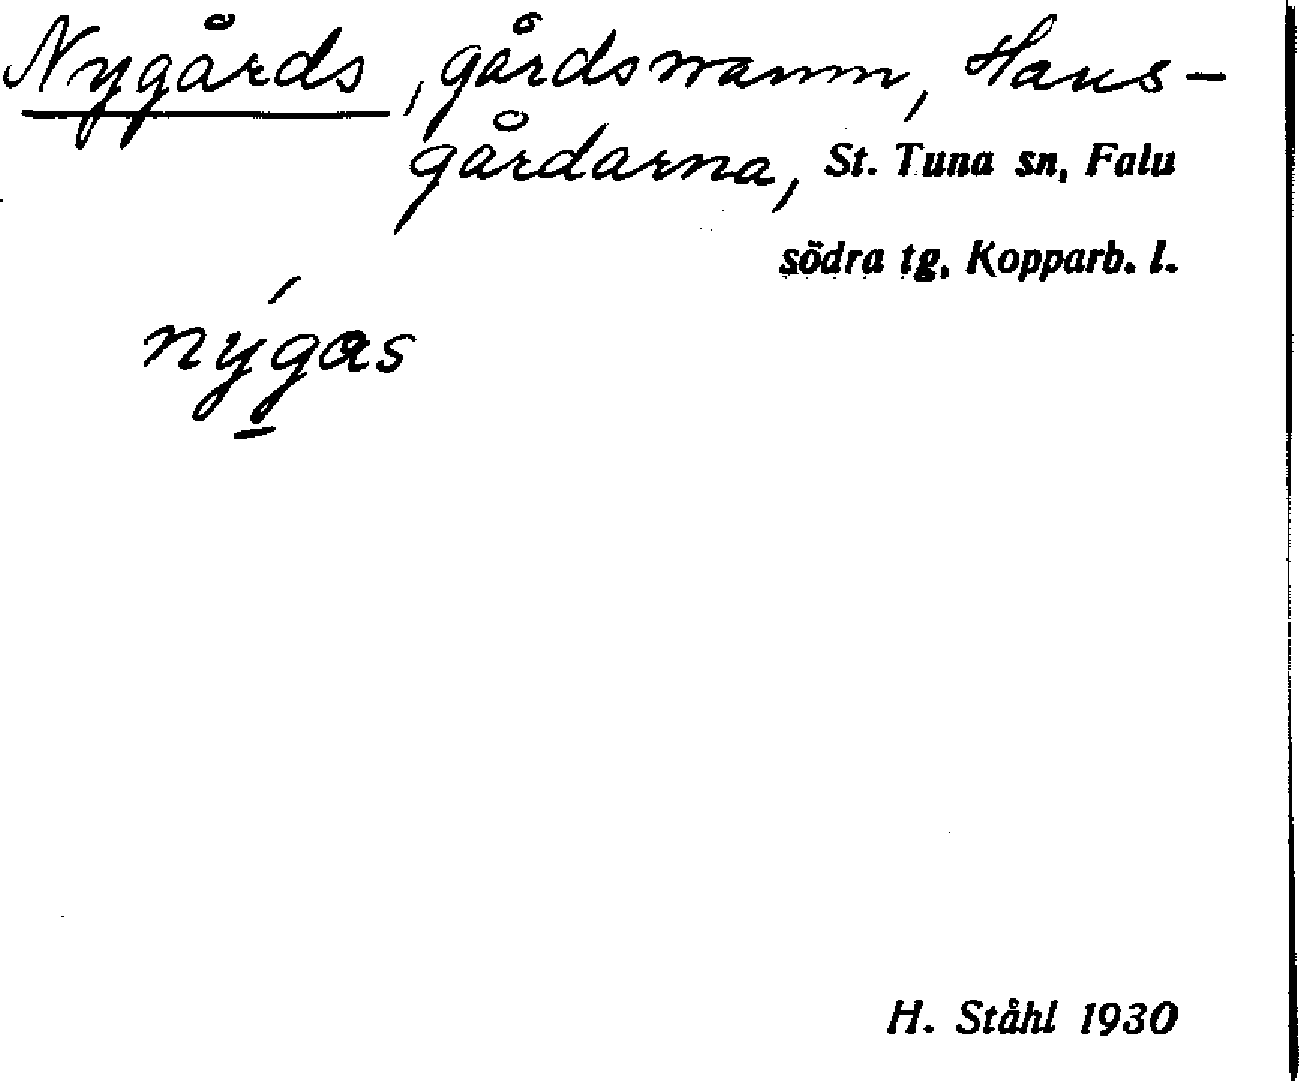 Nygårds, gårdsnamn, Hans-
gårdarna, St. Tuna sn, Falu
södra tg, Kopparb. l.
nýgas
H. Ståhl 1930